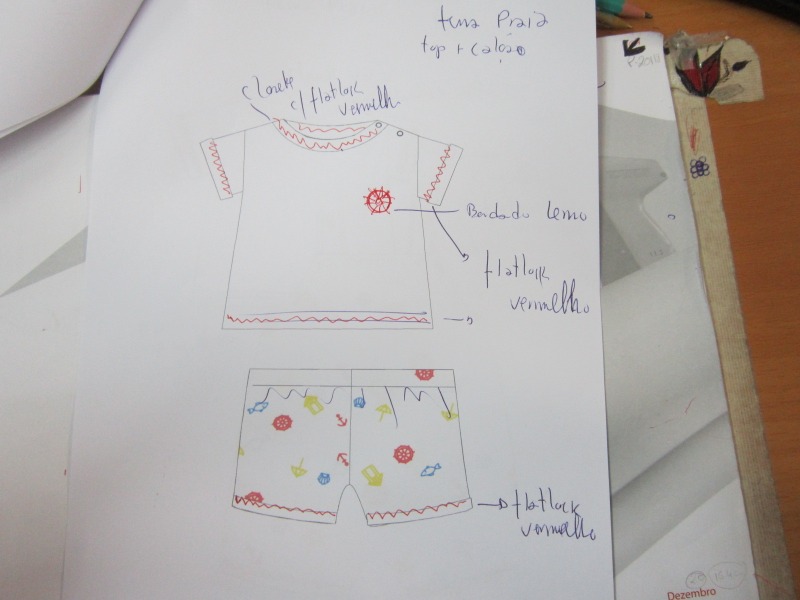 tema Praia
top + calção
P-2010
c/ flatlock
vermelho
Bordado Leme
flatlock
vermelho
flatlock
vermelho
Dezembro